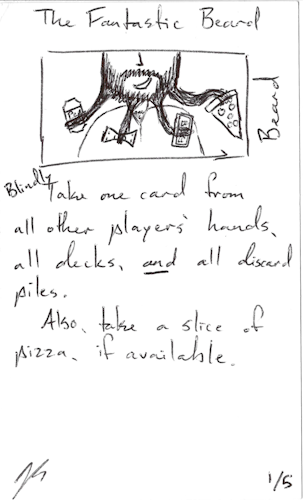 The Fantastic Beard
Beard
Blindly Take one card from
all other players' hands,
all decks, and all discard
piles.
Also, take a slice of
pizza, if available.
1/5